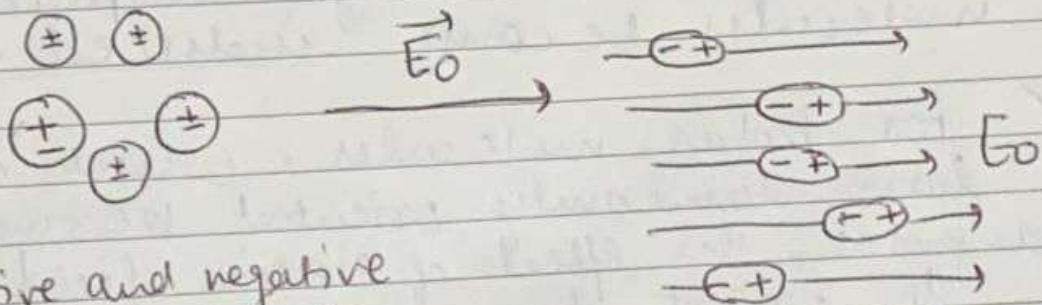 ± ±
E₀
- +
± ±
- +
±
- +
E₀
- +
ive and negative
- +